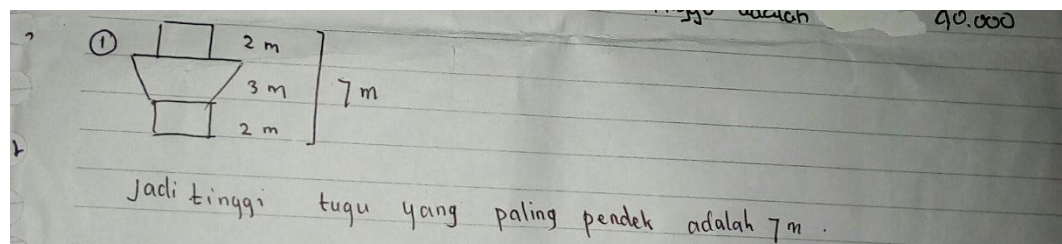 adalah 90.000
① 2 m
3 m 7 m
2 m
Jadi tinggi tugu yang paling pendek adalah 7 m .